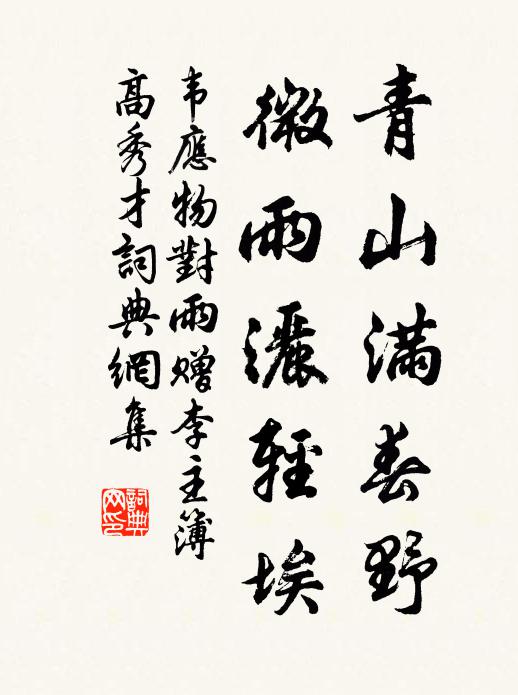 青山满春野
微雨灑輕埃
韦應物對雨赠李主簿
高秀才詞典網集
詞典
网印